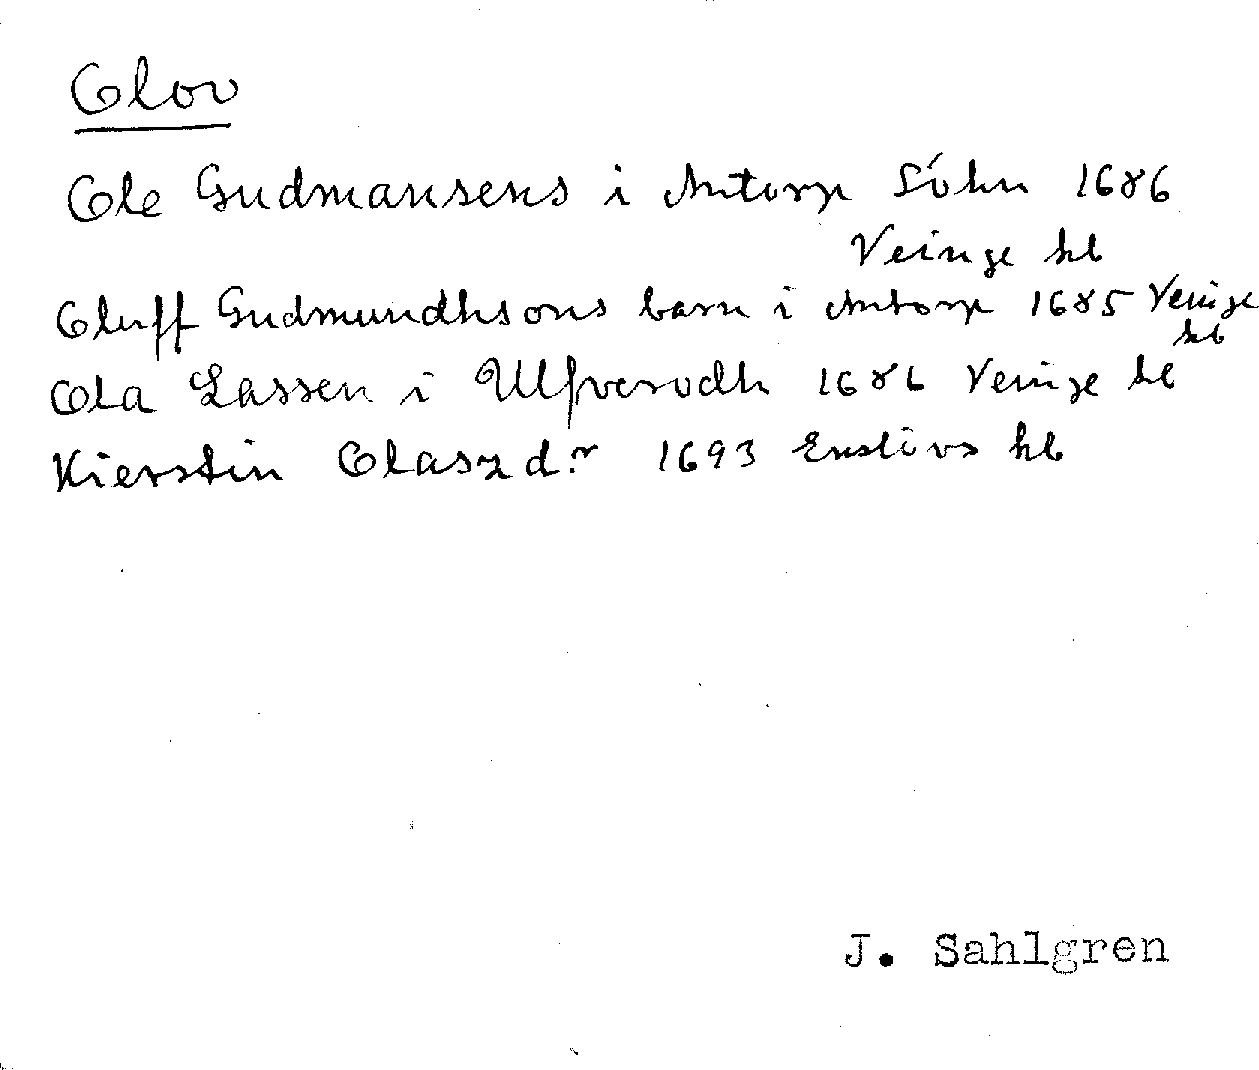 Olov
Ole Gudmansens i Antorp Söhn 1686
Veinge kb
Oluff Gudmundhsons barn i Antorp 1685 Veinge
kb
Ola Lassen i Ulfverödh 1686 Veinge kb
Kierstin Olasz d:r 1693 Enslövs kb
J. Sahlgren